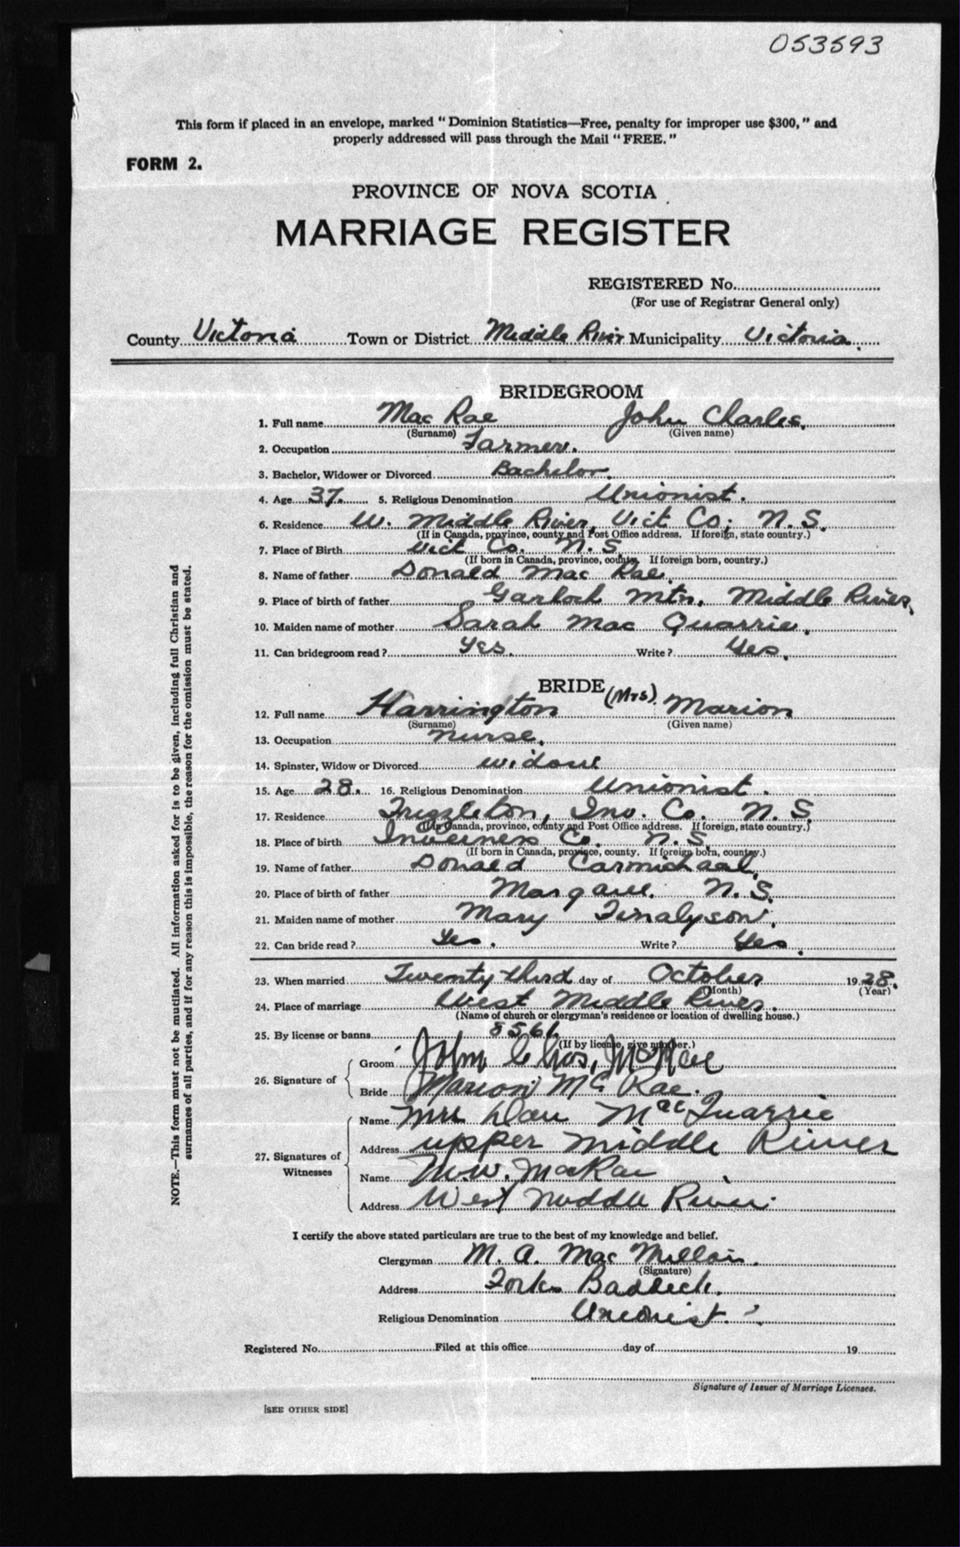 053593
This form if placed in an envelope, marked " Dominion Statistics—Free, penalty for improper use $300, " and
properly addressed will pass through the Mail " FREE. "
FORM 2.
PROVINCE OF NOVA SCOTIA
MARRIAGE REGISTER
REGISTERED No.
(For use of Registrar General only)
County Victoria Town or District Middle River Municipality Victoria.
BRIDEGROOM
1. Full name Mac Rae John Charles.
(Surname) (Given name)
2. Occupation Farmer.
3. Bachelor, Widower or Divorced Bachelor.
4. Age 37. 5. Religious Denomination Unionist.
6. Residence W. Middle River, Vict Co; N.S.
(If in Canada, province, county and Post Office address. If foreign, state country.)
7. Place of Birth Vict Co. N.S.
(If born in Canada, province, county. If foreign born, country.)
8. Name of father Donald Mac Rae.
9. Place of birth of father Garloch Mtn, Middle River,
10. Maiden name of mother Sarah Mac Quarrie.
11. Can bridegroom read? Yes. Write? Yes.
BRIDE (Mrs)
12. Full name Harrington Marion
(Surname) (Given name)
13. Occupation Nurse.
14. Spinster, Widow or Divorced widow
15. Age 28. 16. Religious Denomination Unionist.
17. Residence Frizzleton, Inv. Co. N.S.
(If in Canada, province, county and Post Office address. If foreign, state country.)
18. Place of birth Inverness Co. N.S.
(If born in Canada, province, county. If foreign born, country.)
19. Name of father Donald Carmichael.
20. Place of birth of father Margaree. N.S.
21. Maiden name of mother Mary Finalyson.
22. Can bride read? Yes. Write? Yes.
23. When married Twenty third day of October 1928.
(Month) (Year)
24. Place of marriage West Middle River.
(Name of church or clergyman's residence or location of dwelling house.)
25. By license or banns 8566
(If by license, give number.)
26. Signature of
Groom John Chas, McRae
Bride Marion Mc Rae.
27. Signatures of Witnesses
Name Mrs Dan MacQuarrie
Address upper middle River
Name M.W. MacRae
Address West Middle River.
I certify the above stated particulars are true to the best of my knowledge and belief.
Clergyman M. A. Mac Millan.
(Signature)
Address Forks Baddeck.
Religious Denomination Unionist.
Registered No. Filed at this office day of 19
Signature of Issuer of Marriage Licenses.
[SEE OTHER SIDE]
NOTE.—This form must not be mutilated. All information asked for is to be given, including full Christian and
surnames of all parties, and if for any reason this is impossible, the reason for the omission must be stated.